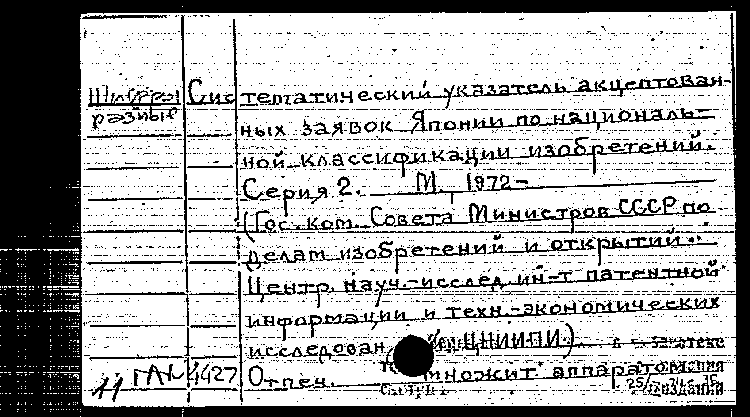 Шифры Систематический указатель акцептован-
разные ных заявок Японии по националь-
ной классификации изобретений.
Серия 2. М., 1972-
(Гос. ком. Совета Министров СССР по
делам изобретений и открытий.
Центр. науч.-исслед. ин-т патентной
информации и техн.-экономических
исследован ЦНИИПИ)
4427 Отпеч. множит аппаратом